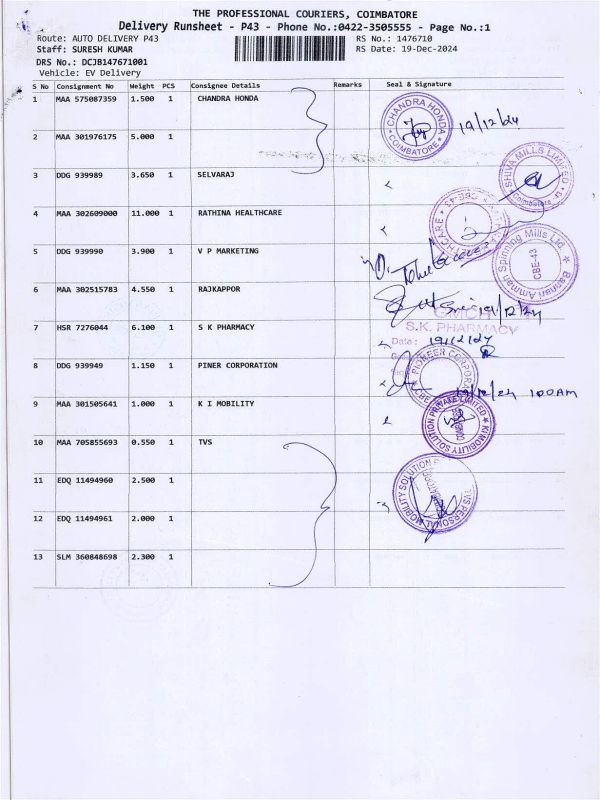 THE PROFESSIONAL COURIERS, COIMBATORE
Delivery Runsheet - P43 - Phone No.:0422-3505555 - Page No.:1
Route: AUTO DELIVERY P43 RS No.: 1476710
Staff: SURESH KUMAR RS Date: 19-Dec-2024
DRS No.: DCJB147671001
Vehicle: EV Delivery
S No Consignment No Weight PCS Consignee Details Remarks Seal & Signature
1 MAA 575087359 1.500 1 CHANDRA HONDA
CHANDRA HONDA COIMBATORE 19/12/24
2 MAA 301976175 5.000 1
3 DDG 939989 3.650 1 SELVARAJ
SHIVA MILLS LIMITED Coimbatore
4 MAA 302609000 11.000 1 RATHINA HEALTHCARE
5 DDG 939990 3.900 1 V P MARKETING
Bannari Amman Spinning Mills Ltd. CBE-43
6 MAA 302515783 4.550 1 RAJKAPPOR
19/12/24
7 HSR 7276044 6.100 1 S K PHARMACY
S.K. PHARMACY
Date : 19/12/24
8 DDG 939949 1.150 1 PINER CORPORATION
PIONEER CORPORA
19/12/24 1:00AM
9 MAA 301505641 1.000 1 K I MOBILITY
KI MOBILITY SOLUTION PRIVATE LIMITED
10 MAA 705855693 0.550 1 TVS
TVS PERSONAL MOBILITY SOLUTION
11 EDQ 11494960 2.500 1
12 EDQ 11494961 2.000 1
13 SLM 360848698 2.300 1